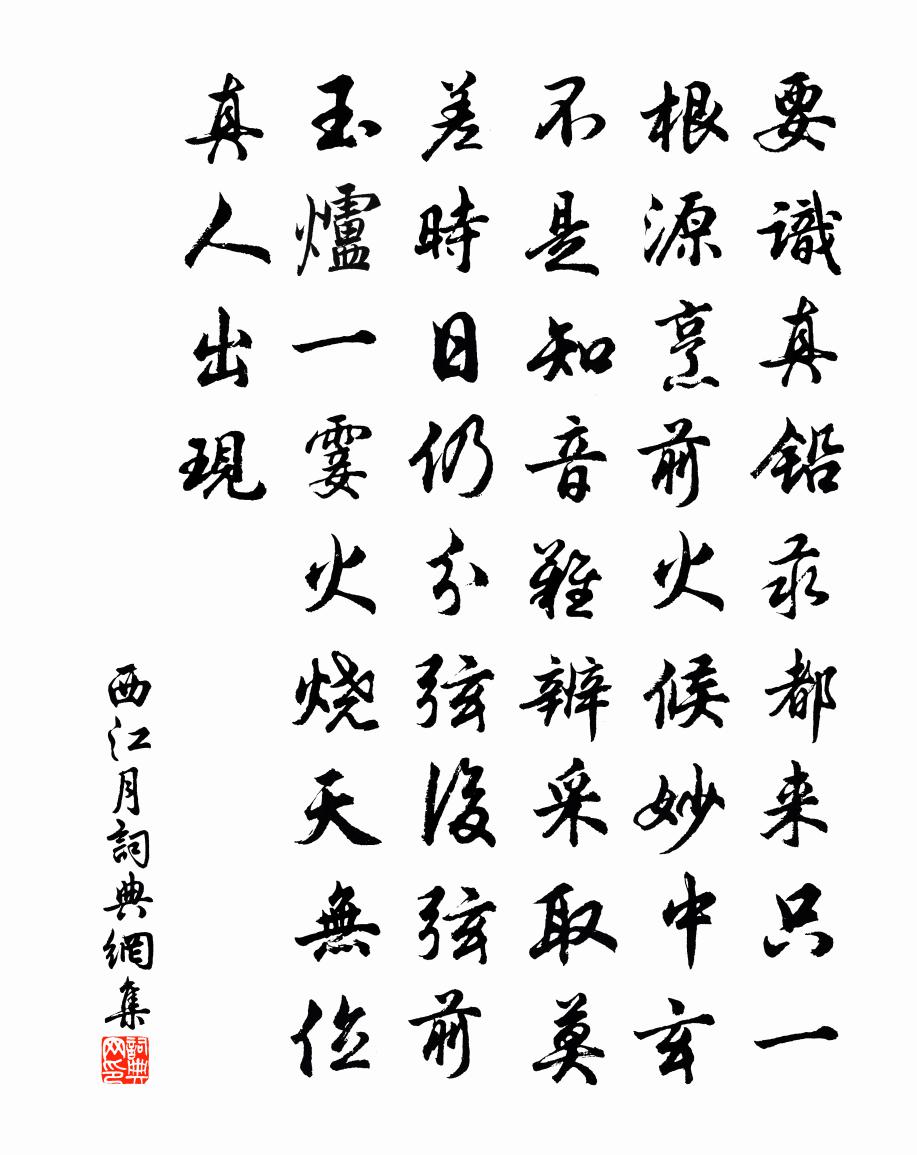 要識真鉛汞都来只一
根源烹前火候妙中玄
不是知音難辨采取莫
差時日仍分弦後弦前
玉爐一霎火烧天無位
真人出現
西江月詞典網集
詞典网印